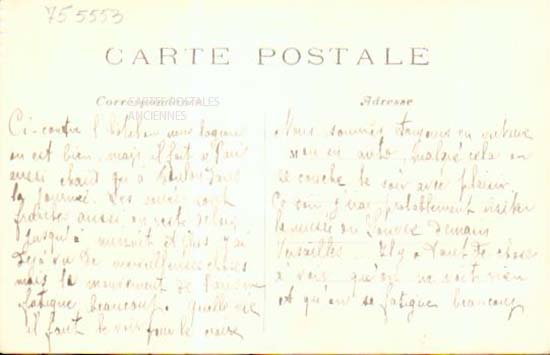 755553
CARTE POSTALE
Correspondance
CARTE POSTALES
ANCIENNES
Adresse
Ci-contre l'hôtel où nous logeons
on est bien mais il fait à Paris
aussi chaud qu'à Toulon dans
la journée. Les soirées sont
fraîches aussi on reste dehors
jusqu'à minuit et plus j'ai
déjà vu de merveilleuses choses
mais le mouvement de
fatigue beaucoup. Quelle vie
il faut le voir pour le croire
Nous sommes toujours en voiture
ou en auto, malgré cela on
se couche le soir avec plaisir.
Ce soir j'irai probablement visiter
le musée du Louvre demain
Versailles. Il y a tant de choses
à voir qu'on ne voit rien
et qu'on se fatigue beaucoup